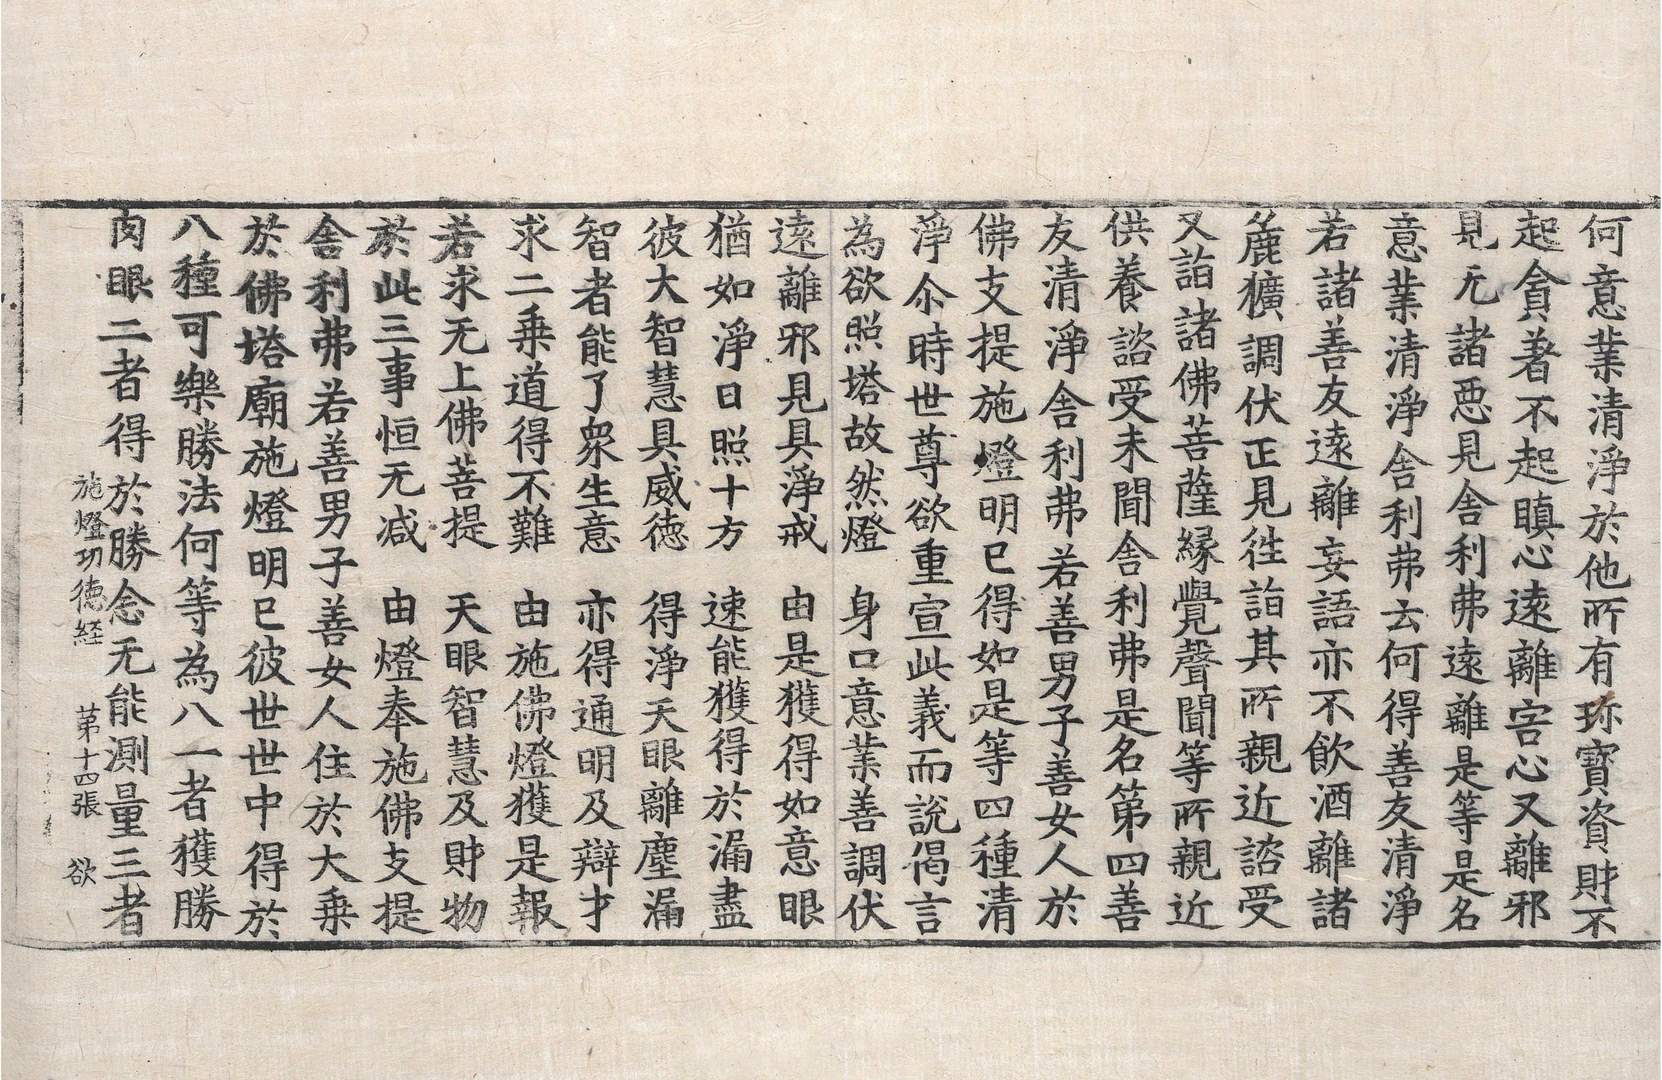 何意業清淨於他所有珎寶資財不
起貪著不起瞋心遠離害心又離邪
見无諸惡見舍利弗遠離是等是名
意業清淨舍利弗云何得善友清淨
若諸善友遠離妄語亦不飲酒離諸
麁獷調伏正見往詣其所親近諮受
又詣諸佛菩薩緣覺聲聞等所親近
供養諮受未聞舍利弗是名第四善
友清淨舍利弗若善男子善女人於
佛支提施燈明已得如是等四種清
淨尒時世尊欲重宣此義而說偈言
為欲照塔故然燈　身口意業善調伏
遠離邪見具淨戒　由是獲得如意眼
猶如淨日照十方　速能獲得於漏盡
彼大智慧具威德　得淨天眼離塵漏
智者能了衆生意　亦得通明及辯才
求二乗道得不難　由施佛燈獲是報
若求无上佛菩提　天眼智慧及財物
於此三事恒无减　由燈奉施佛支提
舍利弗若善男子善女人住於大乗
於佛塔廟施燈明已彼世世中得於
八種可樂勝法何等為八一者獲勝
肉眼二者得於勝念无能測量三者
施燈功德経　苐十四張　欲